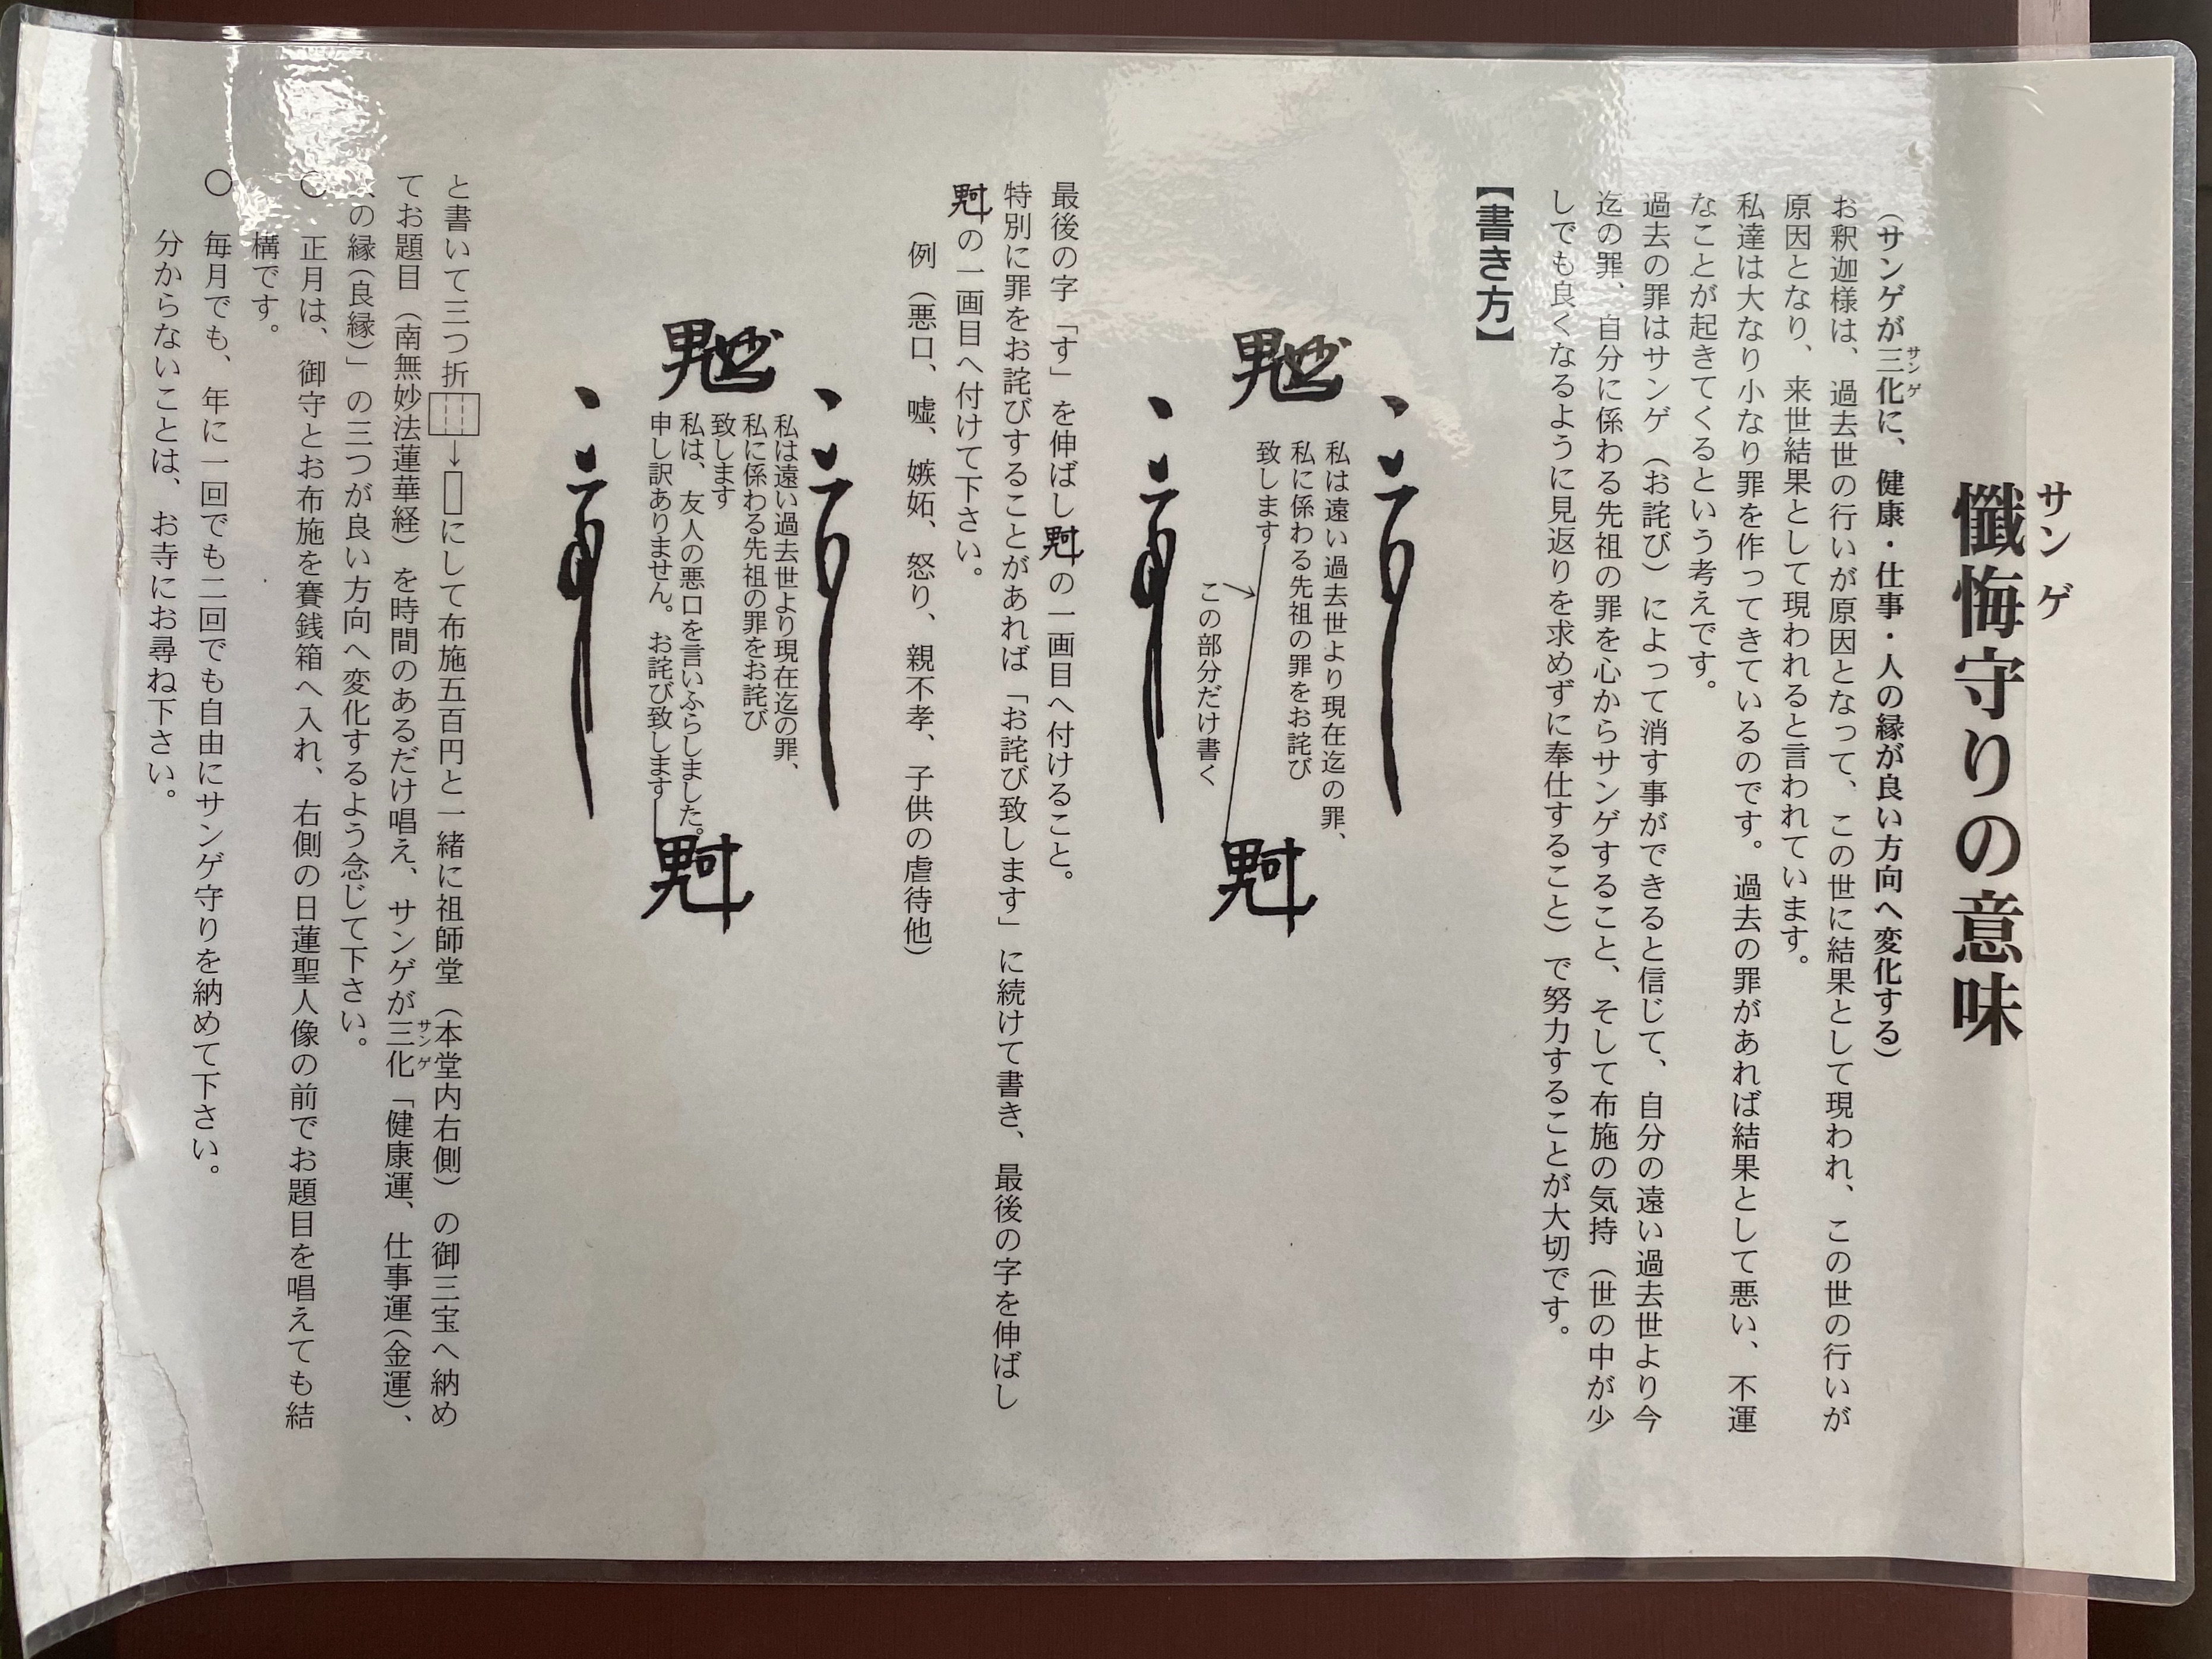 サンゲ
懺悔守りの意味
（サンゲが三化に、健康・仕事・人の縁が良い方向へ変化する）
サンゲ
お釈迦様は、過去世の行いが原因となって、この世に結果として現われ、この世の行いが
原因となり、来世結果として現われると言われています。
私達は大なり小なり罪を作ってきているのです。過去の罪があれば結果として悪い、不運
なことが起きてくるという考えです。
過去の罪はサンゲ（お詫び）によって消す事ができると信じて、自分の遠い過去世より今
迄の罪、自分に係わる先祖の罪を心からサンゲすること、そして布施の気持（世の中が少
しでも良くなるように見返りを求めずに奉仕すること）で努力することが大切です。
【書き方】
私は遠い過去世より現在迄の罪、
私に係わる先祖の罪をお詫び
致します
この部分だけ書く
最後の字「す」を伸ばし の一画目へ付けること。
特別に罪をお詫びすることがあれば「お詫び致します」に続けて書き、最後の字を伸ばし
の一画目へ付けて下さい。
例（悪口、嘘、嫉妬、怒り、親不孝、子供の虐待他）
私は遠い過去世より現在迄の罪、
私に係わる先祖の罪をお詫び
致します
私は、友人の悪口を言いふらしました。
申し訳ありません。お詫び致します
と書いて三つ折 → にして布施五百円と一緒に祖師堂（本堂内右側）の御三宝へ納め
てお題目（南無妙法蓮華経）を時間のあるだけ唱え、サンゲが三化「健康運、仕事運（金運）、
サンゲ
の縁（良縁）」の三つが良い方向へ変化するよう念じて下さい。
〇 正月は、御守とお布施を賽銭箱へ入れ、右側の日蓮聖人像の前でお題目を唱えても結
構です。
〇 毎月でも、年に一回でも二回でも自由にサンゲ守りを納めて下さい。
分からないことは、お寺にお尋ね下さい。